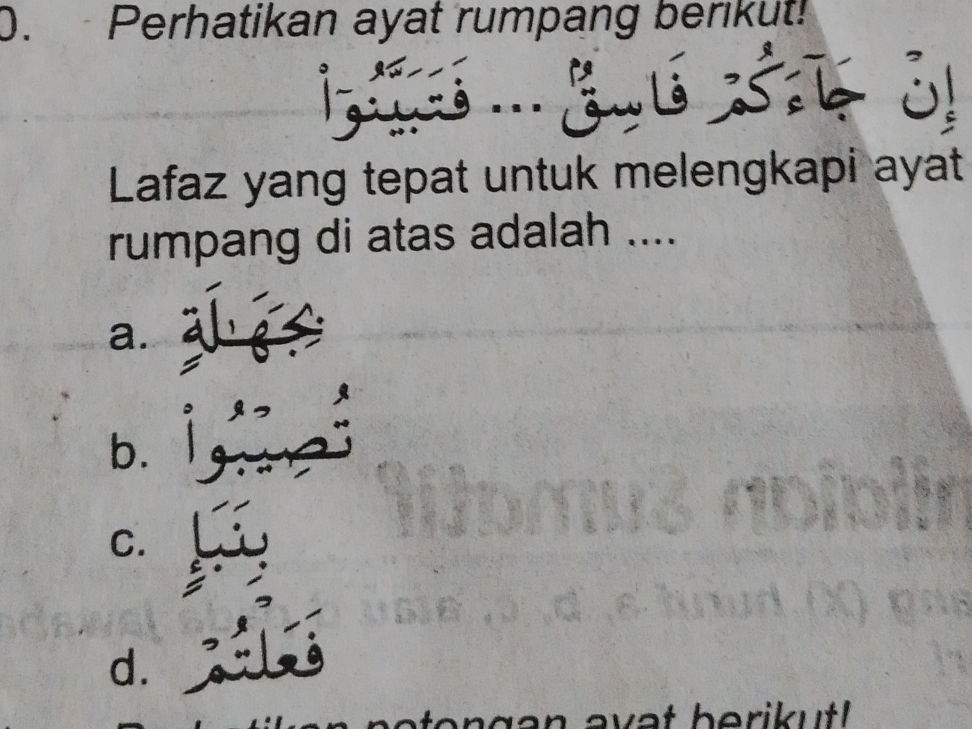 0. Perhatikan ayat rumpang berikut!
إِنْ جَآءَكُمْ فَاسِقٌۢ ... فَتَبَيَّنُوْٓاْ
Lafaz yang tepat untuk melengkapi ayat
rumpang di atas adalah ....
a. بِجَهَٰلَةٍ
b. تُصِيْبُواْ
c. بِنَبَإٍ
d. فَعَلْتُمْ
potongan ayat berikut!